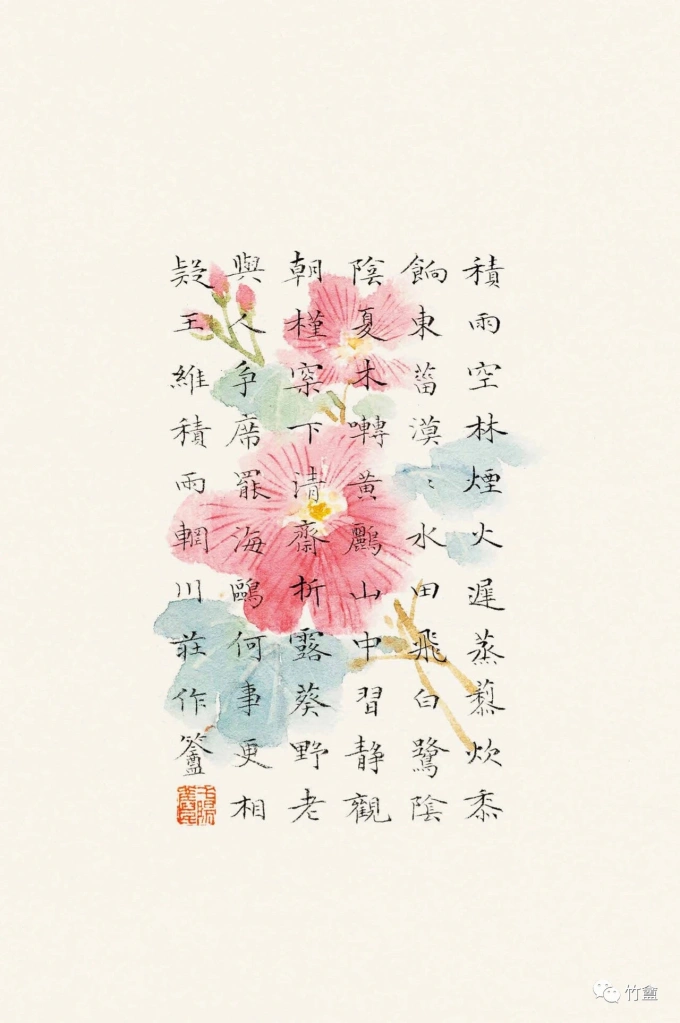 積雨空林煙火遲蒸藜炊黍
餉東菑漠〻水田飛白鷺陰
陰夏木囀黃鸝山中習靜觀
朝槿松下清齋折露葵野老
與人争席罷海鷗何事更相
疑王維積雨輞川莊作竹盦
竹盦